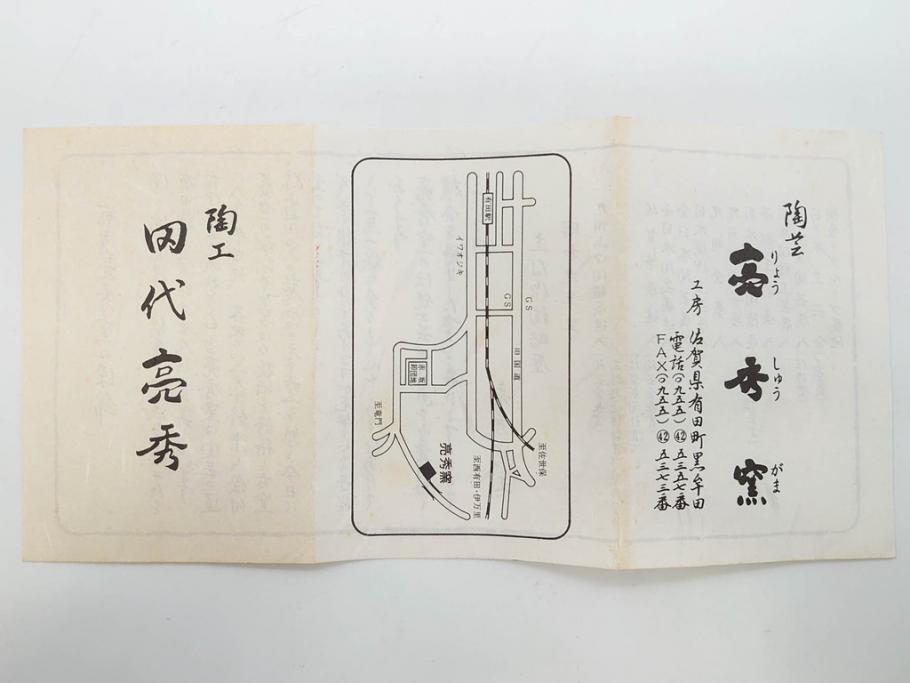 陶芸
亮秀窯
りょう しゅう がま
工房 佐賀県有田町黒牟田
電話(〇九五五)㊷五三五七番
FAX(〇九五五)㊷五三七三番
有田駅
イワオジキ
GS
GS
旧国道
赤坂
卸団地
至竜門
亮秀窯
至西有田・伊万里
至佐世保
陶工
田代亮秀